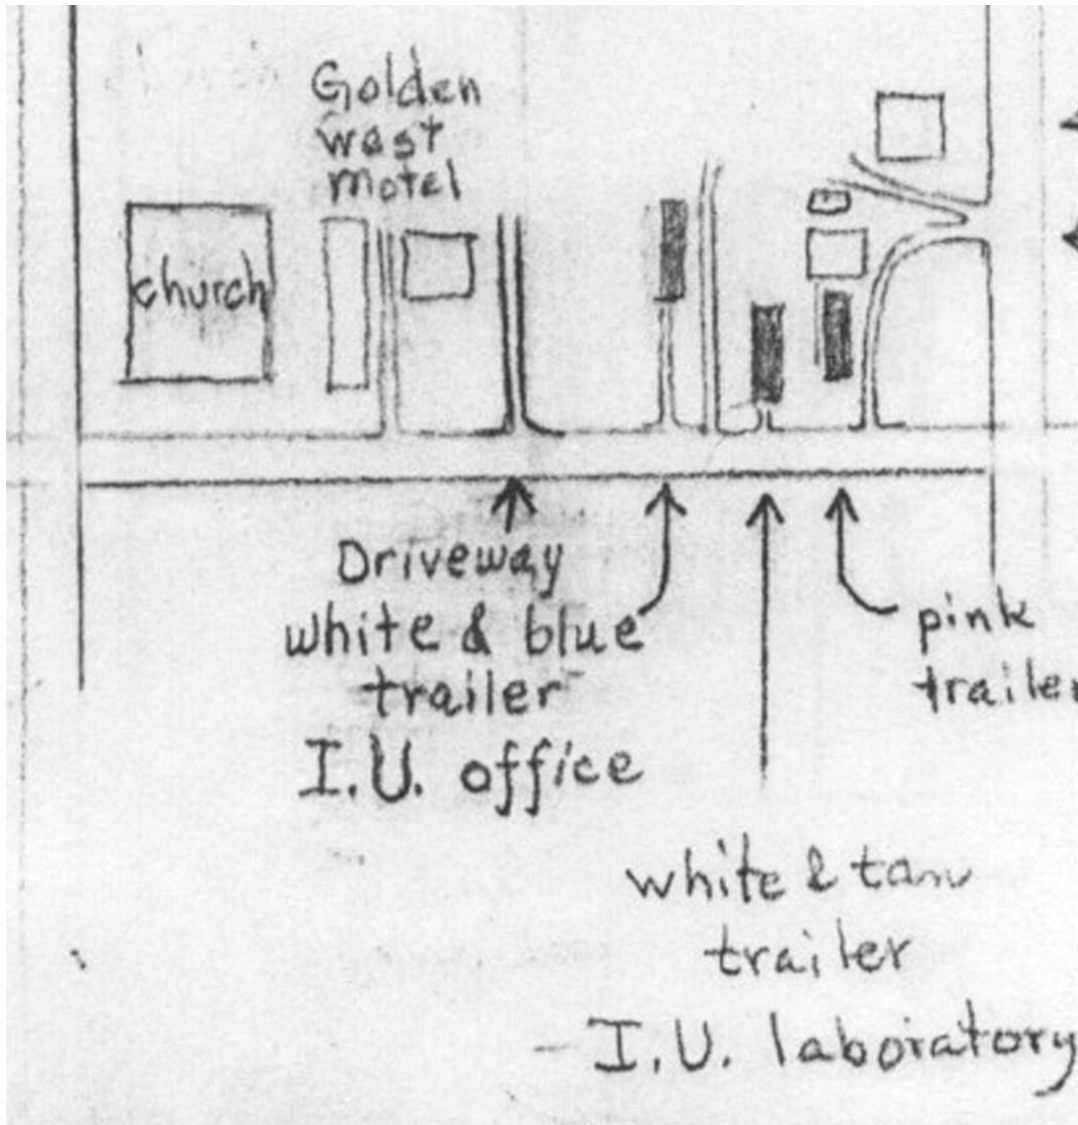 Golden
west
motel
church
Driveway
white & blue
trailer
I.U. office
pink
trailer
white & tan
trailer
- I.U. laboratory